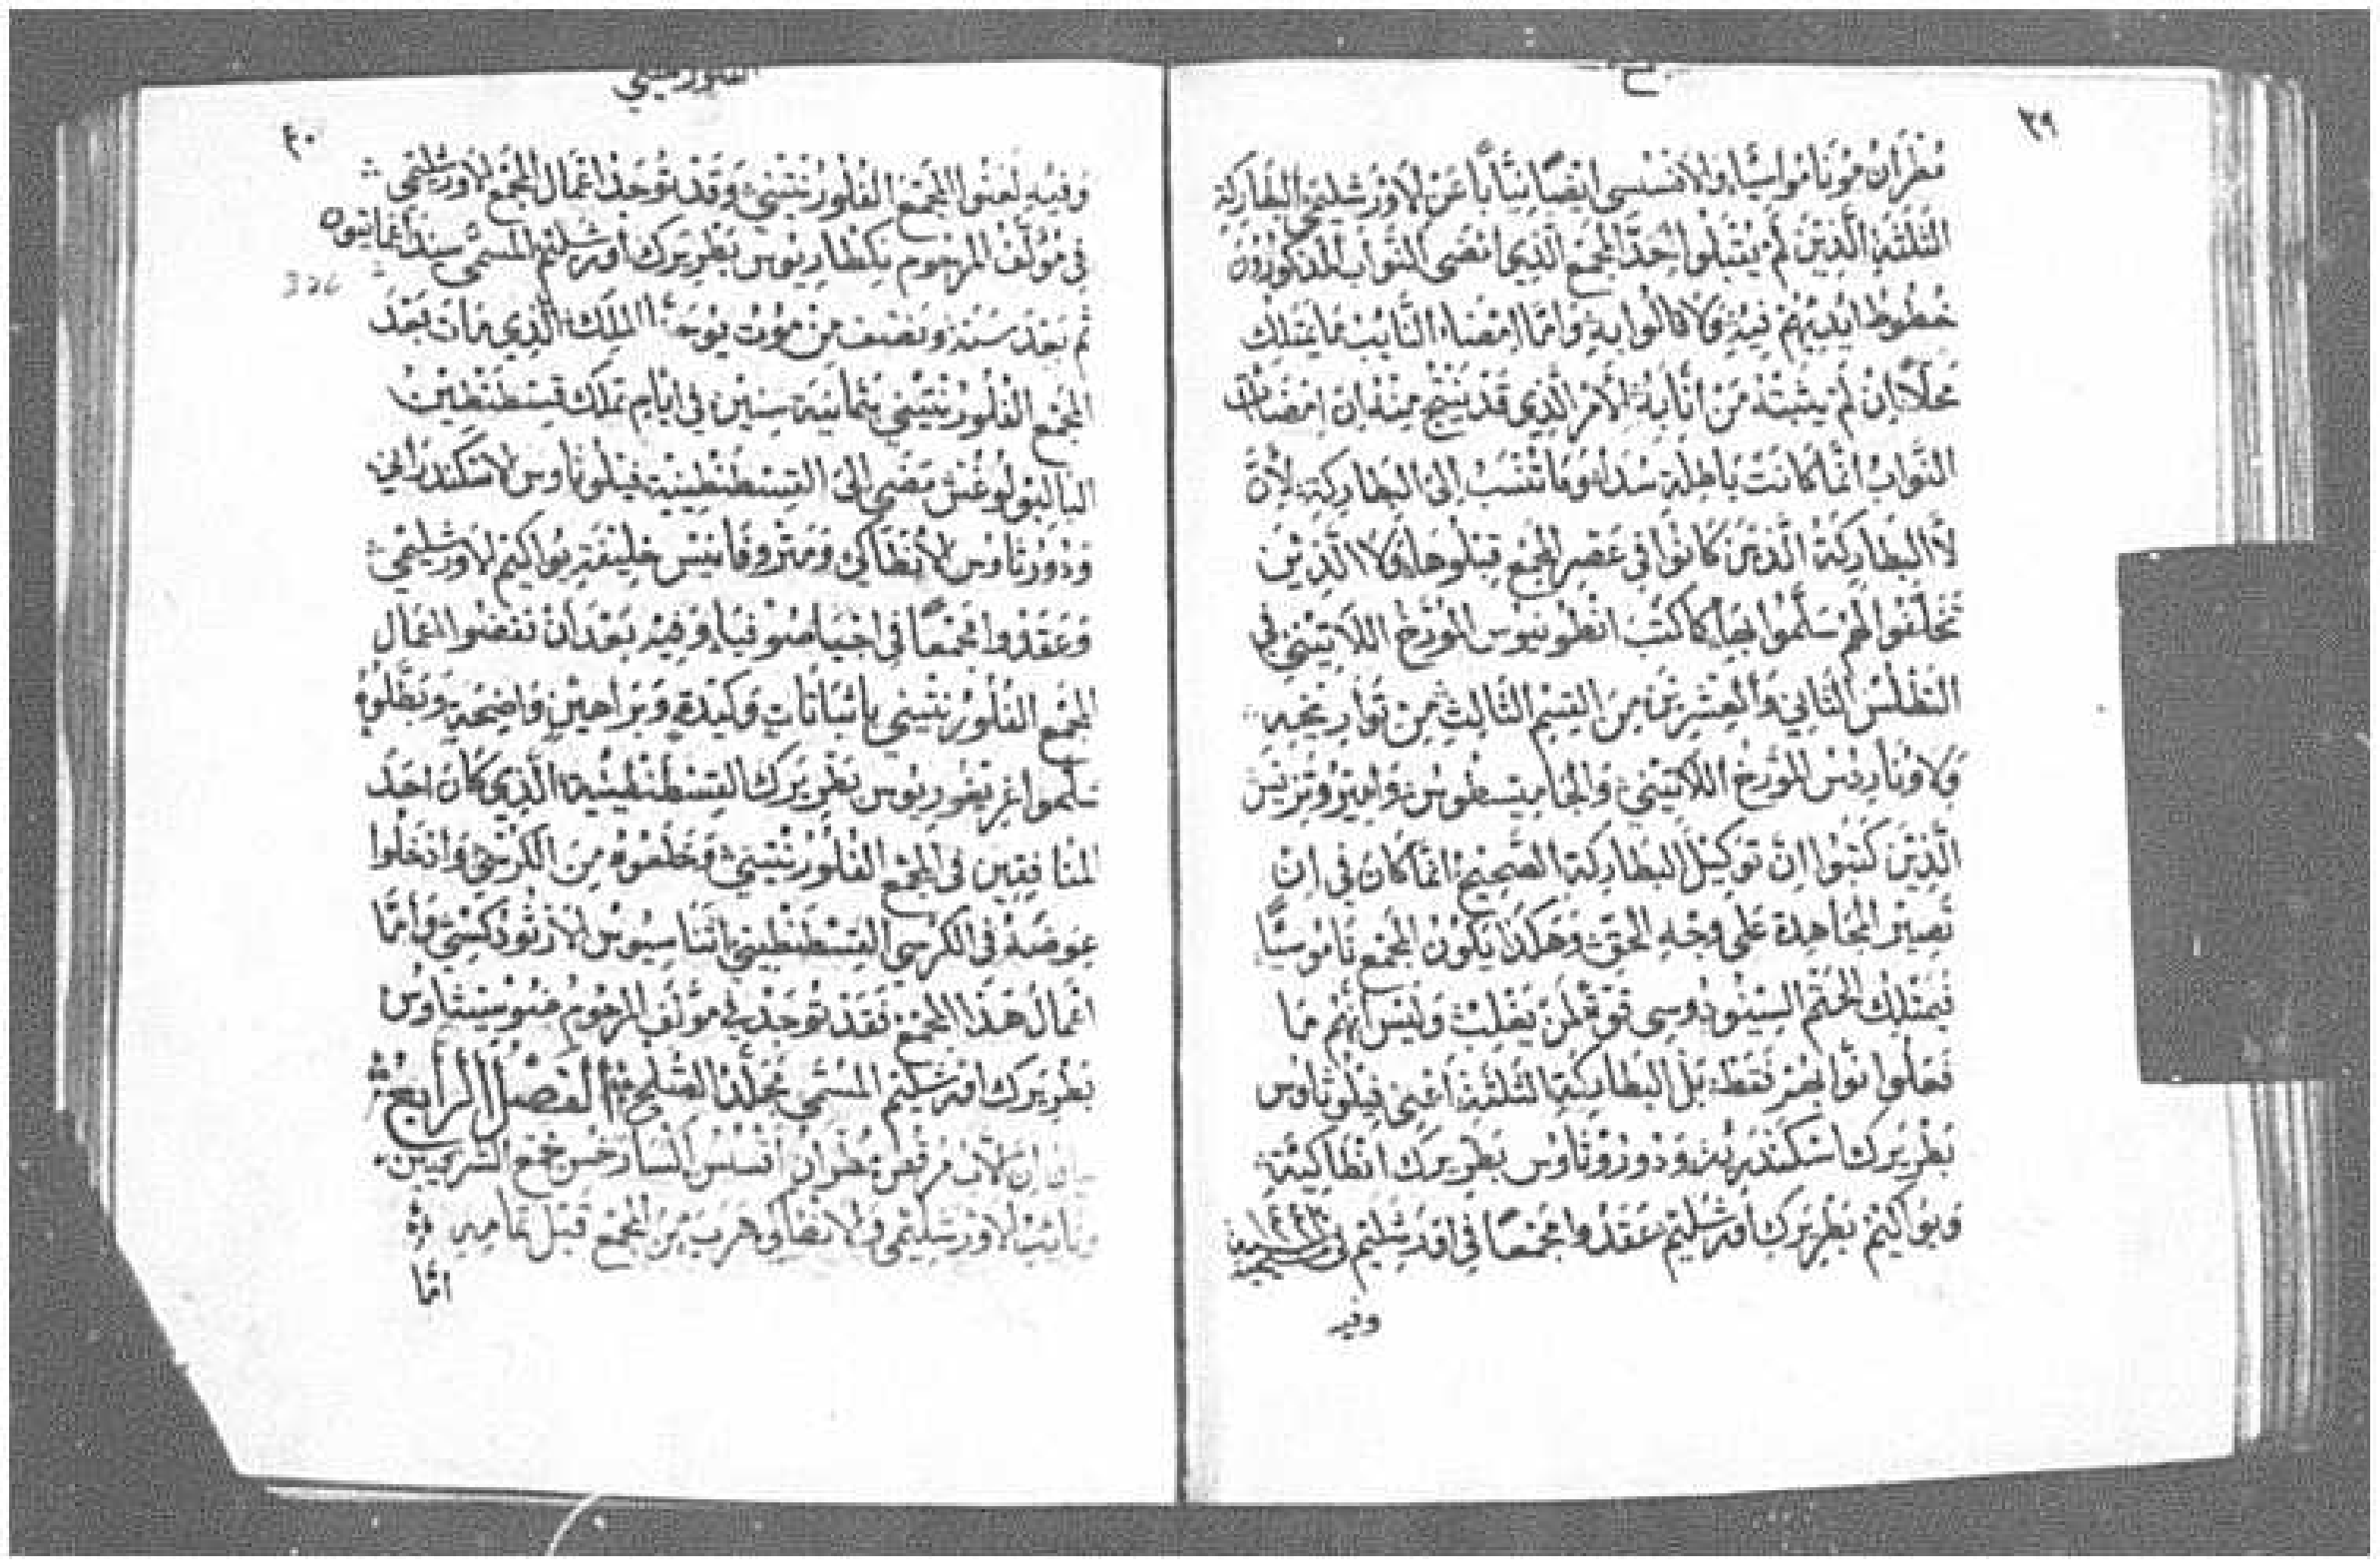 ٣٩
مطران مونامواسيا والافسسي ايضًا نيّابًا عن الاورشليمي البطاركة
الثلثة الذين لم يقبلوا احد المجمع الذي امضى النواب المذكورون
خطوط ايديهم فيه ولا قالوا به واما امضاء النايب فما يمتلك
محلاً ان لم يثبته من انابه الامر الذي قد ينتج منه ان امضات
النواب انما كانت باطلة سدا وما تنسب الى البطاركة لان
لا البطاركة الذين كانوا في عصر المجمع قبلوها ولا الذين
تخلفوا لهم سلموا بها كما كتب انطونيوس المورخ اللاتيني في
الططلس الثاني والعشرين من القسم الثالث من تواريخه
ولاوناردس المورخ اللاتيني والجاميسطوس وامبروتزيس
الذين كتبوا ان توكيل البطاركة الصحيح انما كان في ان
تصير المجاهدة على وجه الحق وهكذا يكون المجمع ناموسيًا
فيمتلك الختم السينودوسي قوة لن يغلب وليس انهم ما
فعلوا نوابهم فقط بل البطاركة الثلثة اعني فيلوثاوس
بطريرك اسكندرية ودوروثاوس بطريرك انطاكية
ويواكيم بطريرك اورشليم عقدوا مجمعًا في اورشليم في
وفيه
الفلورنتيني
٤٠
وفيه لعنوا المجمع الفلورنتيني وقد توجد اعمال المجمع الاورشليمي
في مولف المرحوم نكطاريوس بطريرك اورشليم المسمى
326
ثم بعد سنة ونصف من موت يوحنا الملك الذي مات بعد
المجمع الفلورنتيني بثمانية سنين في ايام تملك قسطنطين
الباليولوغش مضى الى القسطنطينية فيلوثاوس الاسكندراني
ودوروثاوس الانطاكي ومتروفانيس خليفة يواكيم الاورشليمي
وعقدوا مجمعًا في اجيا صوفيا وفيه بعد ان نقضوا اعمال
المجمع الفلورنتيني باثباتات وكيدة وبراهين واضحة وبطلوه
سلموا غريغوريوس بطريرك القسطنطينية الذي كان احد
المنافقين في المجمع الفلورنتيني وخلعوه من الكرسي وادخلوا
عوضه في الكرسي القسطنطيني اثناسيوس الارثودكسي واما
اعمال هذا المجمع فقد توجد في مولف المرحوم ضوسيثاوس
بطريرك اورشليم المسمى مجلد الصلح الفصل الرابع
ان الاب مرقس مطران افسس خس مجمع الغربيين
ونايب الاورشليمي والانطاكي هرب من المجمع قبل تمامه
اما